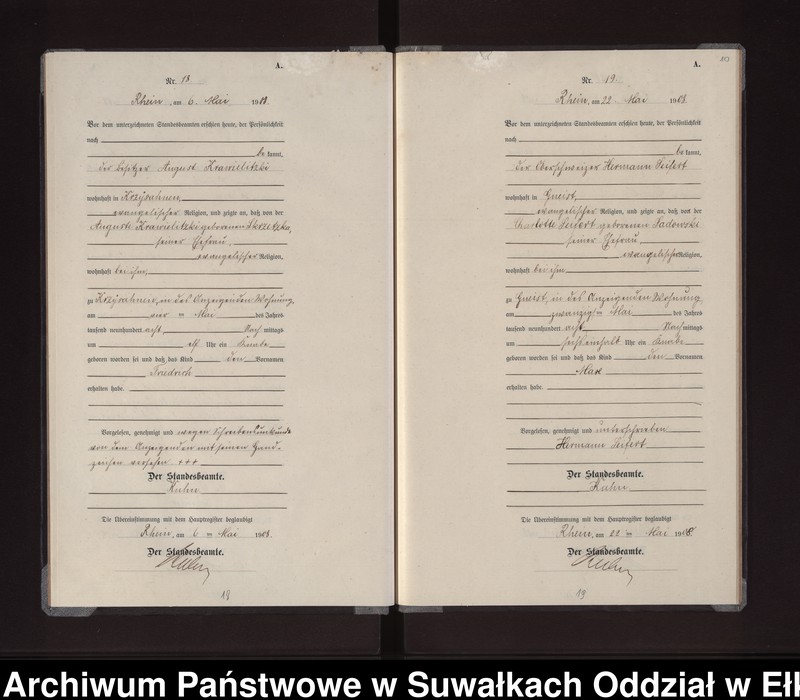 A.
Nr. 18.
Rhein, am 6. Mai 1908.
Vor dem unterzeichneten Standesbeamten erschien heute, der Persönlichkeit
nach
be kannt,
der Besitzer August Krawielitzki
wohnhaft in Krzysahnen,
evangelischer Religion, und zeigte an, daß von der
Auguste Krawielitzki geborenen Skrzitzka,
seiner Ehefrau,
evangelischer Religion,
wohnhaft bei ihm,
zu Krzysahnen, in des Anzeigenden Wohnung,
am vier ten Mai des Jahres
tausend neunhundert acht Nach mittags
um elf Uhr ein Knabe
geboren worden sei und daß das Kind den Vornamen
Friedrich
erhalten habe.
Vorgelesen, genehmigt und wegen Schreibensunkunde
von dem Anzeigenden mit seinem Hand-
zeichen versehen +++
Der Standesbeamte.
Kuhn
Die Übereinstimmung mit dem Hauptregister beglaubigt
Rhein, am 6 ten Mai 1908.
Der Standesbeamte.
Kuhn
19
A.
Nr. 19.
Rhein, am 22. Mai 1908.
Vor dem unterzeichneten Standesbeamten erschien heute, der Persönlichkeit
nach
be kannt,
der Oberschweizer Hermann Seifert
wohnhaft in Gneist,
evangelischer Religion, und zeigte an, daß von der
Charlotte Seifert geborenen Sadowski
seiner Ehefrau,
evangelischer Religion,
wohnhaft bei ihm
zu Gneist, in des Anzeigenden Wohnung
am zwanzig ten Mai des Jahres
tausend neunhundert acht Nach mittags
um sechseinhalb Uhr ein Knabe
geboren worden sei und daß das Kind den Vornamen
Max
erhalten habe.
Vorgelesen, genehmigt und unterschrieben
Hermann Seifert
Der Standesbeamte.
Kuhn
Die Übereinstimmung mit dem Hauptregister beglaubigt
Rhein, am 22 ten Mai 1908.
Der Standesbeamte.
Kuhn
19
Archiwum Państwowe w Suwałkach Oddział w Ełk